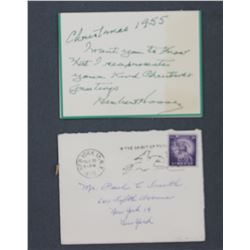 Christmas 1955
I want you to know
that I reciprocate
your kind Christmas
greetings
Herbert Hoover
NEW YORK, N.Y.
Mr. Paul L. Smith
Eighth Avenue
New York 14
New York